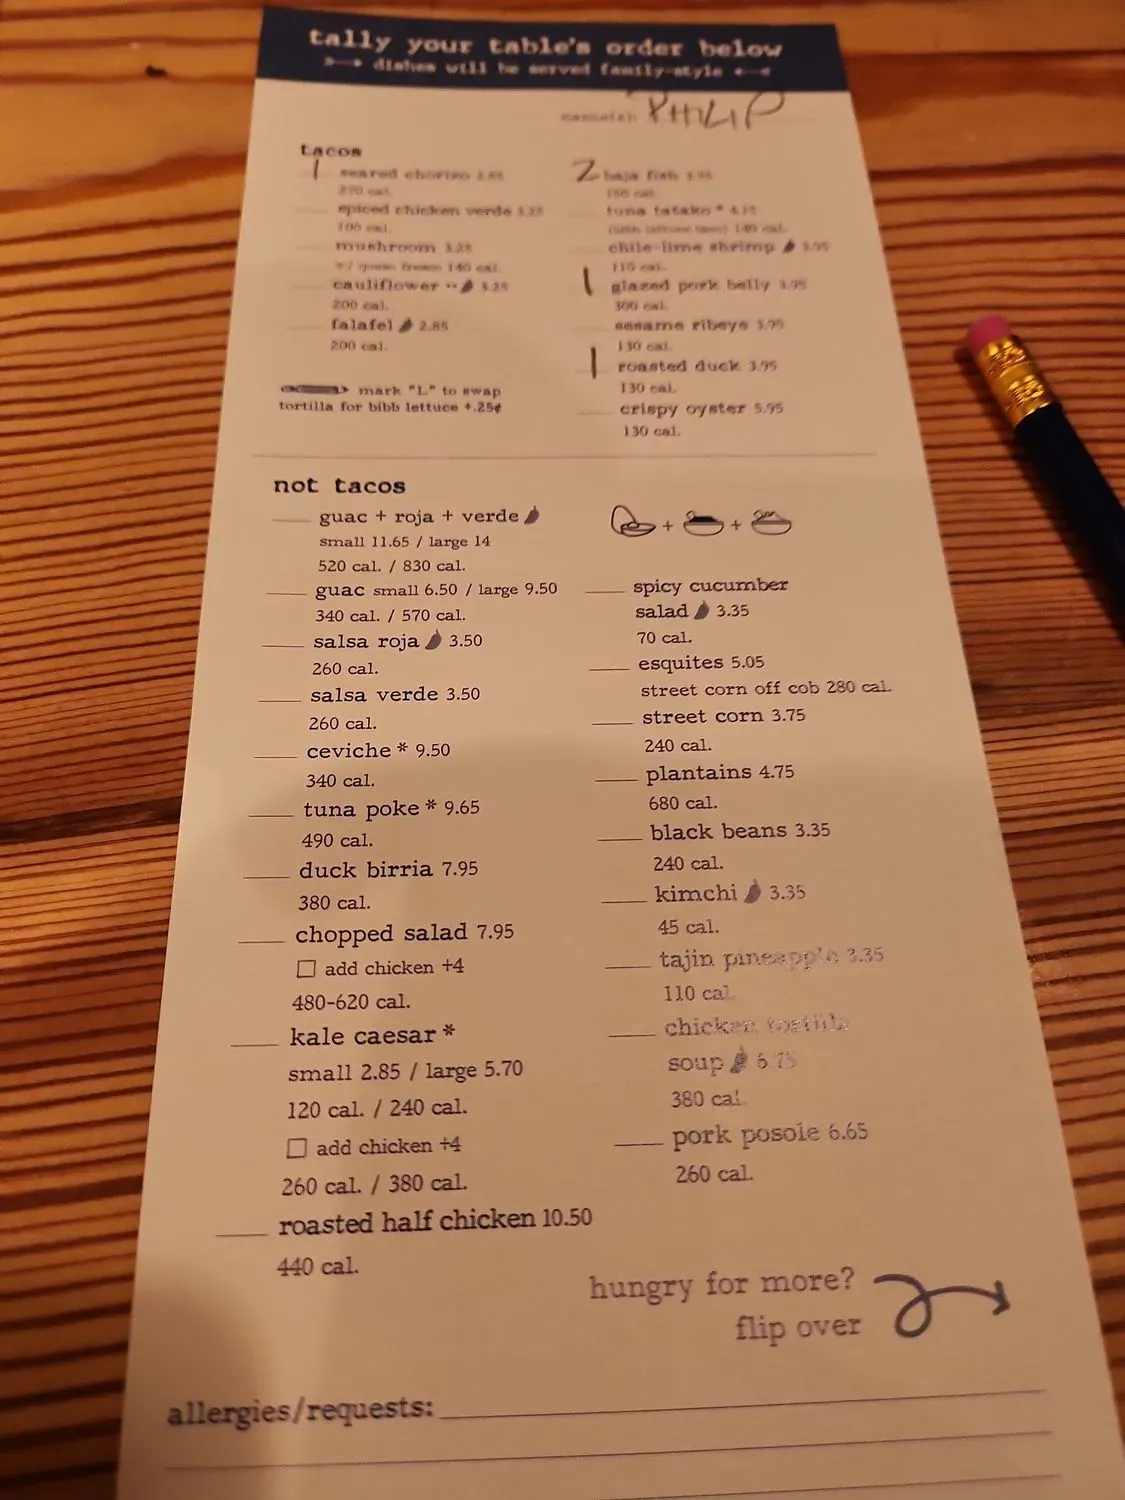 tally your table's order below
dishes will be served family-style
name(s): PHILIP
tacos
1 seared chorizo 2.85
270 cal.
spiced chicken verde 3.25
100 cal.
mushroom 3.25
w/ queso fresco 140 cal.
cauliflower 3.25
200 cal.
falafel 2.85
200 cal.
mark "L" to swap
tortilla for bibb lettuce +.25¢
2 baja fish 3.95
cal.
tuna tatako * 4.15
(bibb lettuce taco) 140 cal.
chile-lime shrimp 3.95
110 cal.
1 glazed pork belly 3.95
300 cal.
sesame ribeye 3.95
130 cal.
1 roasted duck 3.95
130 cal.
crispy oyster 5.95
130 cal.
not tacos
guac + roja + verde
small 11.65 / large 14
520 cal. / 830 cal.
guac small 6.50 / large 9.50
340 cal. / 570 cal.
salsa roja 3.50
260 cal.
salsa verde 3.50
260 cal.
ceviche * 9.50
340 cal.
tuna poke * 9.65
490 cal.
duck birria 7.95
380 cal.
chopped salad 7.95
add chicken +4
480-620 cal.
kale caesar *
small 2.85 / large 5.70
120 cal. / 240 cal.
add chicken +4
260 cal. / 380 cal.
roasted half chicken 10.50
440 cal.
+ +
spicy cucumber
salad 3.35
70 cal.
esquites 5.05
street corn off cob 280 cal.
street corn 3.75
240 cal.
plantains 4.75
680 cal.
black beans 3.35
240 cal.
kimchi 3.35
45 cal.
tajin pineapple 3.35
110 cal.
chicken tortilla
soup 6.75
380 cal.
pork posole 6.65
260 cal.
hungry for more?
flip over
allergies/requests: